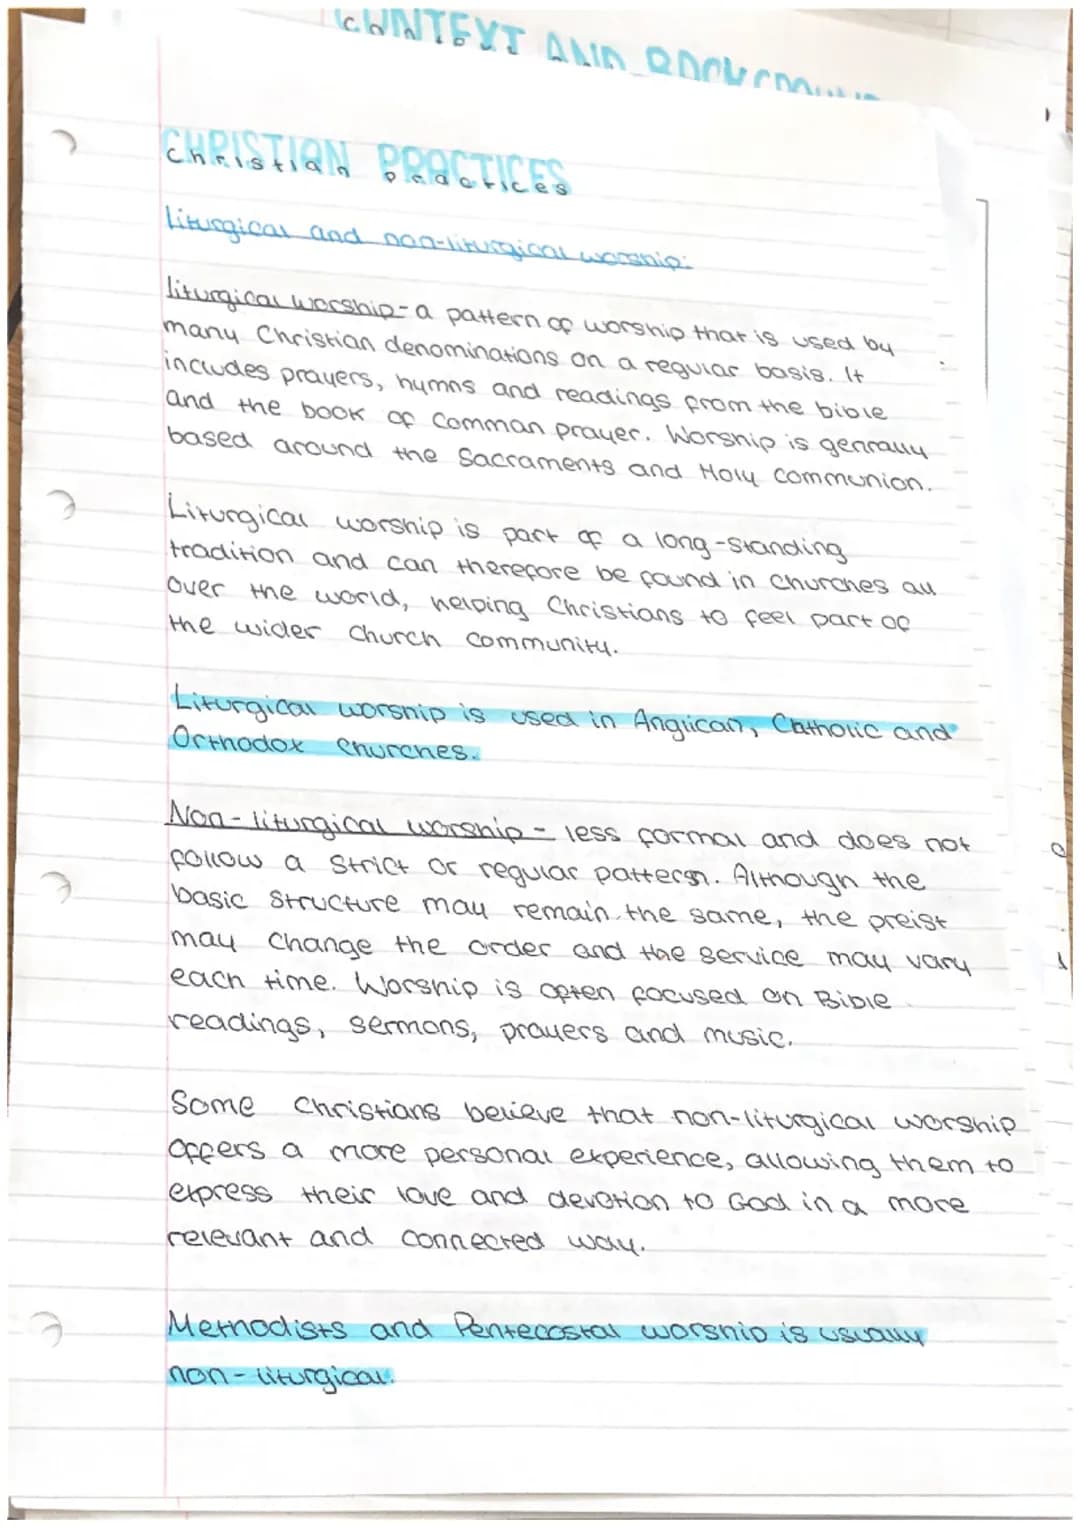 CONTEXT AND
CHRISTIAN PRACTICES
Christian practices
Liturgical and non-liturgical worship:
Liturgical worship- a pattern of worship that is used by
many Christian denominations on a regular basis. It
includes prayers, hymns and readings from the bible
and the book of Comman prayer. Worship is genrally
based around the Sacraments and Holy Communion.
Liturgical worship is part of a long-standing
tradition and can therefore be found in churches all
over the world, helping Christians to feel part of
the wider church community.
Liturgical worship is used in Anglican, Catholic and
Orthodox Churches.
Non-liturgical worship - less formal and does not
follow a strict or regular pattern. Although the
basic structure may remain the same, the preist
may change the order and the service may vary
each time. Worship is often focused on Bible
readings, sermons, prayers and music.
Some Christians believe that non-liturgical worship
offers a more personal experience, allowing them to
express their love and devotion to God in a more
relevant and connected way.
Methodists and Pentecostal worship is usually
non-liturgical.